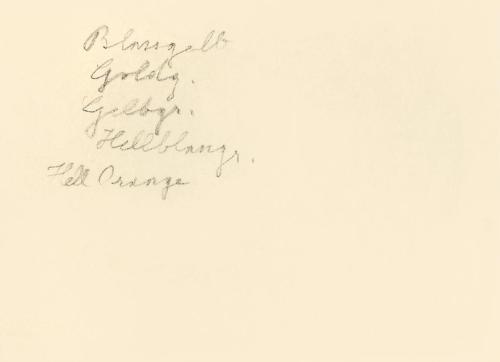 Blassgelb
Goldg.
Gelbgr.
Hellblaugr.
Hell Orange